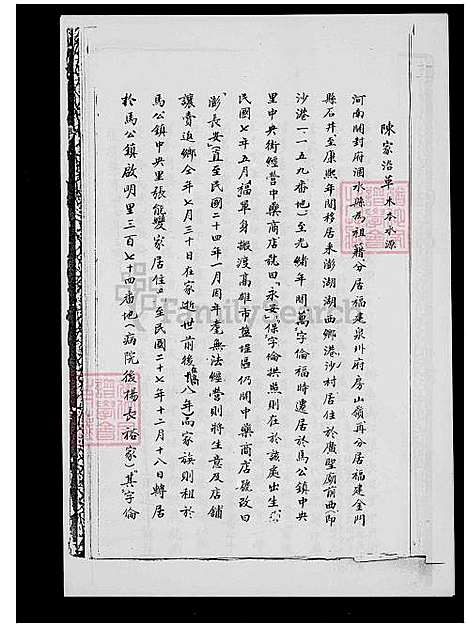 陳家治草木本水源
河南開封府酒水縣為祖籍分居福建泉州府房山嶺再分居福建金門
縣石井至康熙年間移居來澎湖湖西鄉港沙村居住於廣聖廟前西(即
沙港(一一五九番地)至光緒年間萬字倫福時遷居於馬公鎮中央
里中央街經營中藥商店號曰「永安」保字倫拱照則在於該處出生
民國七年五月福單身搬渡高雄市塩埕區仍開中藥商店號改曰
「澎長安」直至民國二十四年一月周年老無法經營則將生意及店鋪
讓賣返鄉仝年七月三十日在家逝世前後 八年)而家族則租於
馬公鎮中央里張能變家居住至民國二十七年十二月十八日轉居
於馬公鎮啟明里三百七十四番地(病院後楊長裕家)其字倫
FamilySearch